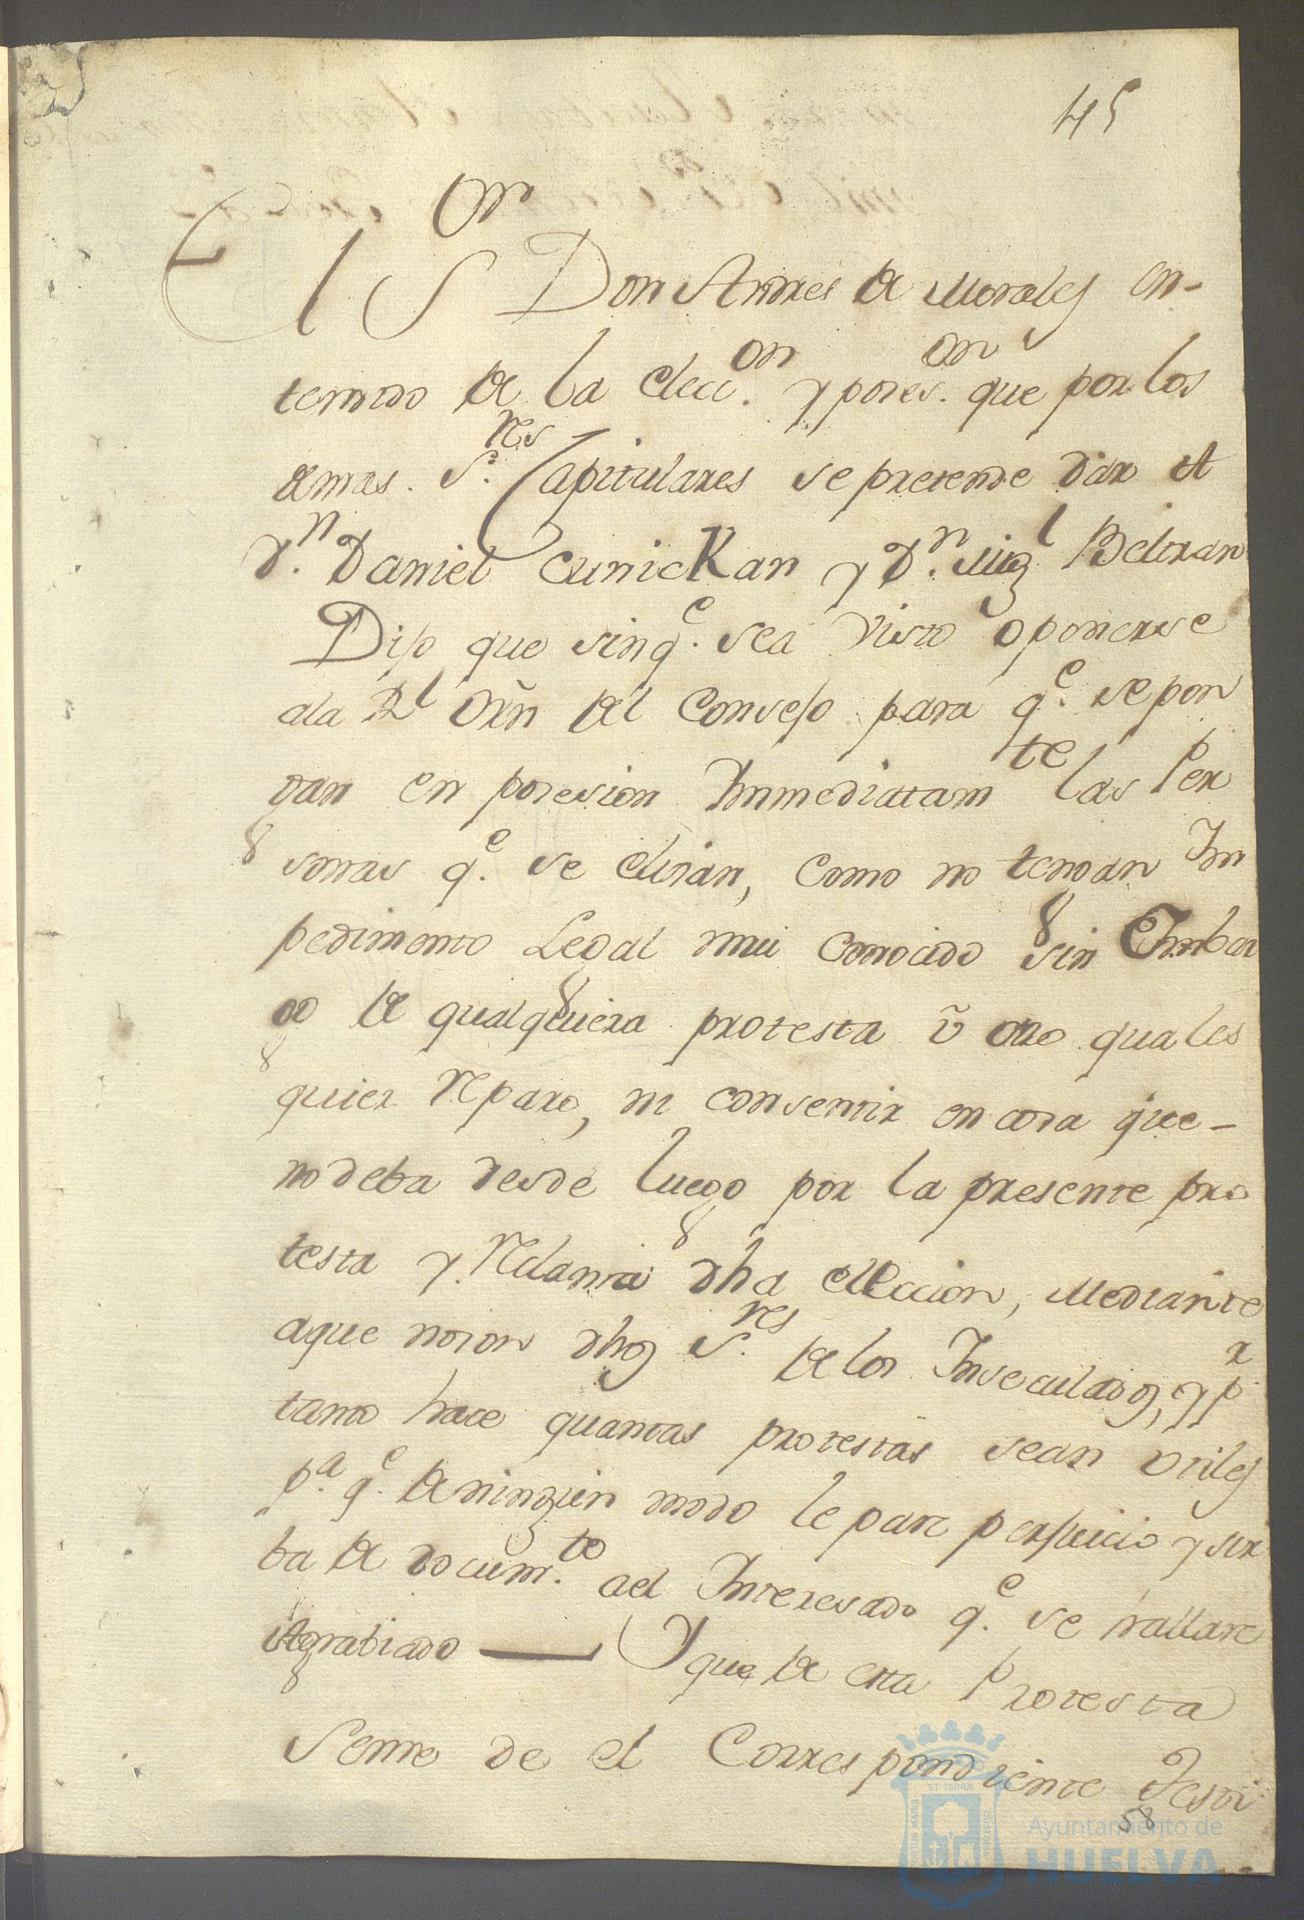 45
El S.or Don Andres de Morales en-
terado de la elecc.on y poses.on que por los
demas S.res Capitulares se pretende dar a
D.n Daniel CunicKan y D.n Mig.l Beltran
Dijo que sin q.e sea visto oponerse
ala R.l Orn del Consejo para q.e se pon
gan en posesion Inmediatam.te las Per
sonas q.e se elixan, como no tengan Im
pedimento Legal mui conocido sin Embar
go de qualquiera protesta ũ otro quales
quier reparo, ni consentir en cosa que-
no deba desde luego por la presente pro
testa y reclama dha eleccion, Mediante
aque no son dhos S.res de los Inseculados, y p.r
tanto hace quantas protestas sean utiles
p.a q.e de ningun modo le pare perjuicio y sir
ba de docum.to ael Interesado q.e se hallare
Agrabiado — Y que de esta Protesta
se me de el Correspondiente Testi
58
Ayuntamiento de
HUELVA